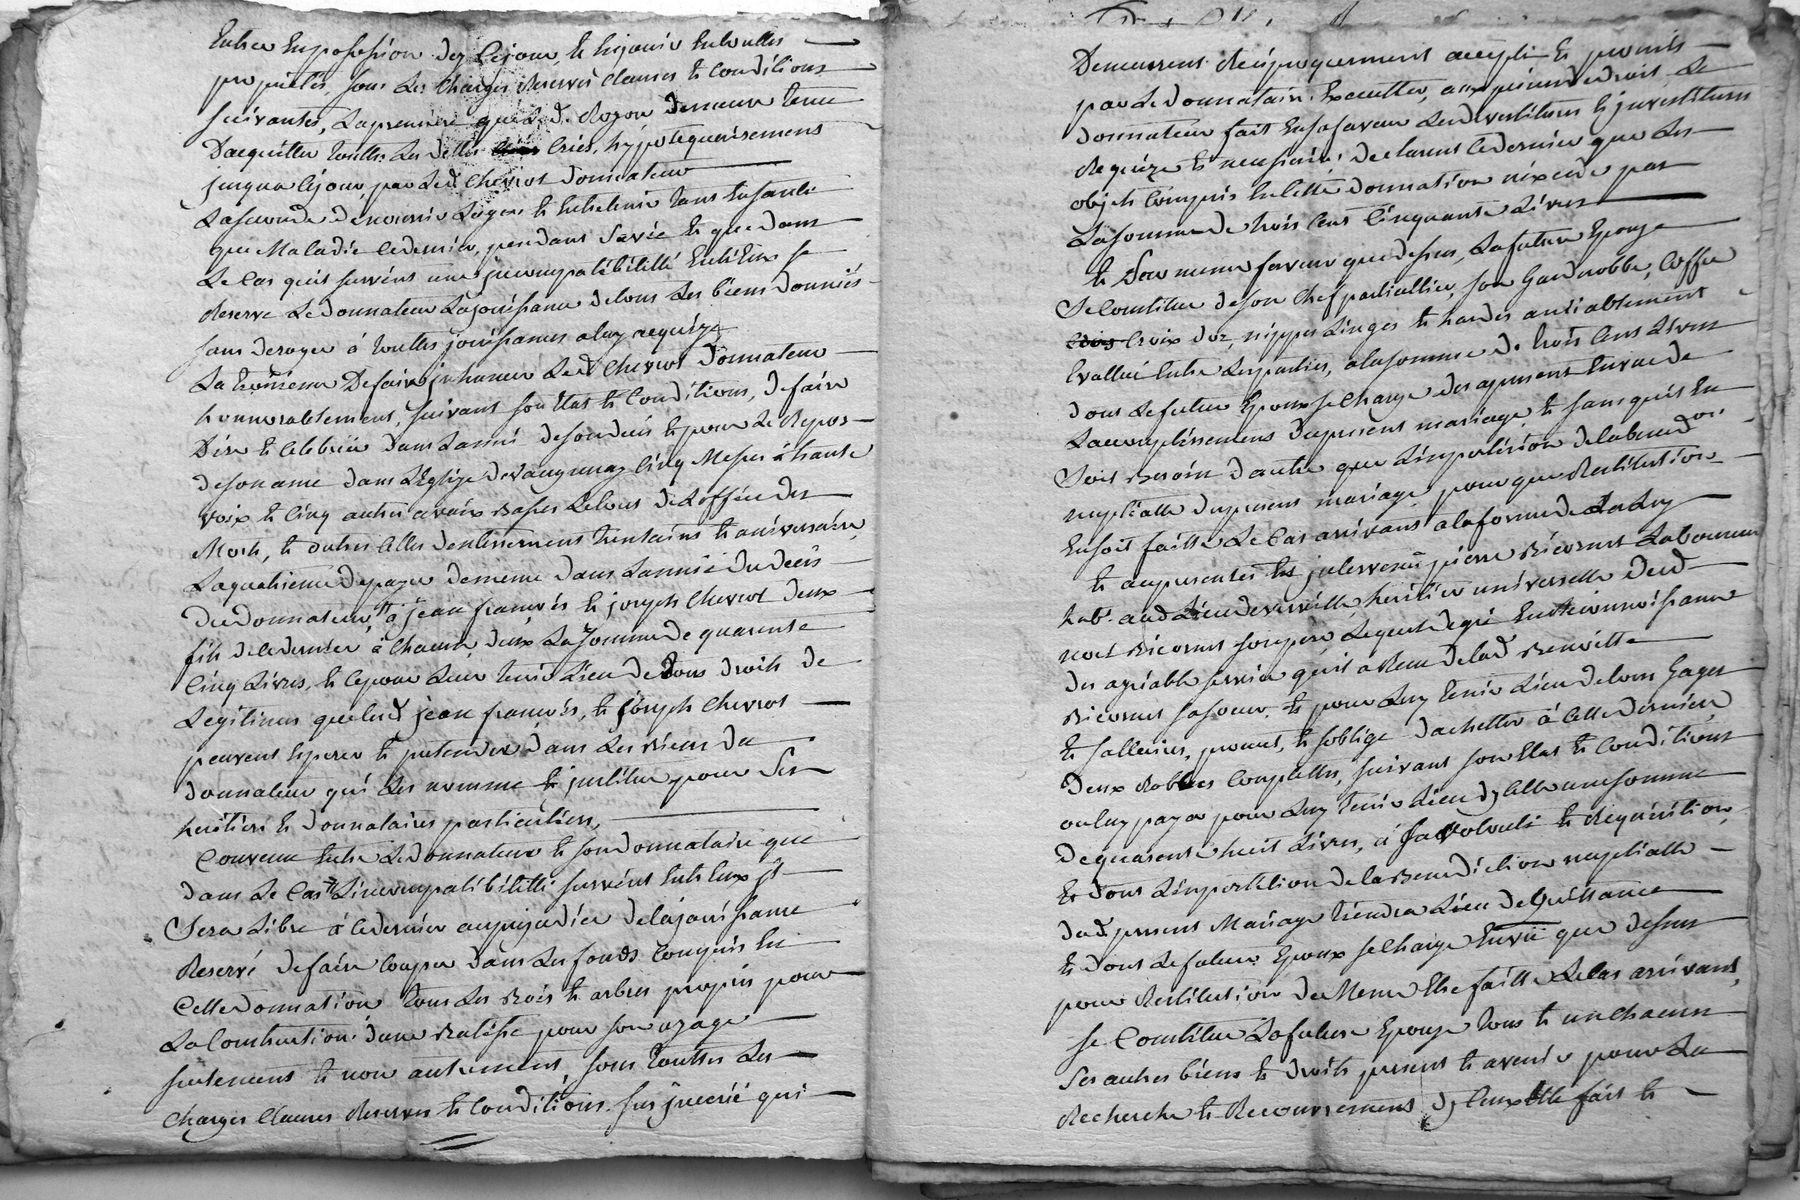 Entrer En possession dez Cejour, et En jouir En touttes
propriétés, sous Les Charges Reserves Clauses et Conditions
suivantes, La premiere que Led. Rozon demeure tenu
Dacquitter touttes Les dettes Créés, hypotequairement
jusqua Cejour, par Led Chevrot donnateur
La seconde de nourrir Loger et Entretenir tant En santé
que Maladie Cedernier, pendant Savie Et que dans
Le Cas quil survint une jncompatibilitté Entre Eux se
Reserve Le donnateur La jouissance de tous Les biens donnés
sans deroger à touttes jouissances aluy acquizes
La troisieme De faire jnhumer Led Chevrot donnateur
honnorablement, suivant son Etat et Conditions, de faire
Dire et Celebrer dans Lannée de son decès Et pour Le Repos
de son ame dans L'église de Vaugneray Cinq Messes à haute
voix et Cinq autres avoix Basses Letout de Loffice des
Morts, et outre Celles dentérrement trentains et aniversaire,
Laquatrieme de payer de meme dans Lannée du decès
du donnateur, à jean françois Et joseph Chevrot deux
fils de Cedernier à Chacun deux La somme de quarante
Cinq Livres, et Cepour Leur tenir Lieu de tous droits de
Legitimes que Lesd jean françois, et joseph Chevrot
peuvent Esperer et pretendre dans Les biens du
donnateur qui Les nomme et jnstitue pour Ses
heritiers et donnataires particuliers,
Convenu Entre Le donnateur et son donnataire que
dans Le Cas Lincompatibilitté survint Entre Eux jl
Sera Libre à Cedernier au prejudice de la jouissance
Reservé de faire Couper dans Les fonds Compris En
Cette donnation tous Les Bois et arbres propres pour
La Construction d'une Batisse pour son uzage
seulement et non autrement, sous touttes Les
Charges Clauses Reserves et Conditions sus jnseré qui
Demeurent Reciproquement accepté Et promis
par Le donnataire Executter, aux peines de droit Le
donnateur fait En sa faveur Les devestitures Et jnvestitures
Requize et necessaire; declarent Cedernier que Les
objets Compris En Cette donnation n'excede pas
La somme de trois Cent Cinquante Livres
Et Sou meme faveur que dessus, La future Epouze
Se Constitue de son Chef particullier, son Garderobbe, Coffre
Croix dor, nippes Linges et hardes amiablement
Evallué Entre Les parties, ala somme de trois Cens Livres
dont Le futur Epoux se Charge des apresent En vue de
Laccomplissement du present mariage et sans quil En
Soit Besoin d'autre que Linpartition de la bened.on
nuptialle du present mariage pour que Restitution
En soit faitte Le Cas arrivant ala forme de La Loy
Et au present Est jntervenu pierre Bicornet Laboureur
hab.t aud Lieu heritier universelle dud
noel Bicornet son pere, Lequel de gré En Reconnoissance
des agréable service quil a Reçu de Lad Benoitte
Bicornet sa soeur, Et pour Luy tenir Lieu de tous Gages
Et sallaires, promet, et soblige d'achetter à Cette derniere
deux Robbes Complettes, suivant son Etat Et Conditions
ou Luy payer pour Luy tenir Lieu d'jcelle une somme
de quarante huit Livres, à Sa volonté et Requisition,
Et dont Linpartition de la Benediction nuptialle
dud present Mariage tiendra Lieu de Quittance
Et dont Le futur Epoux se Charge Envie que dessus
pour Restitution de Meme Etre faitte Le Cas arrivant,
se Constitue La future Epouze tous Et un Chacun
Ses autres biens Et droits present et avenir pour La
Recherche et Recouvrement d'jceux Elle fait Et